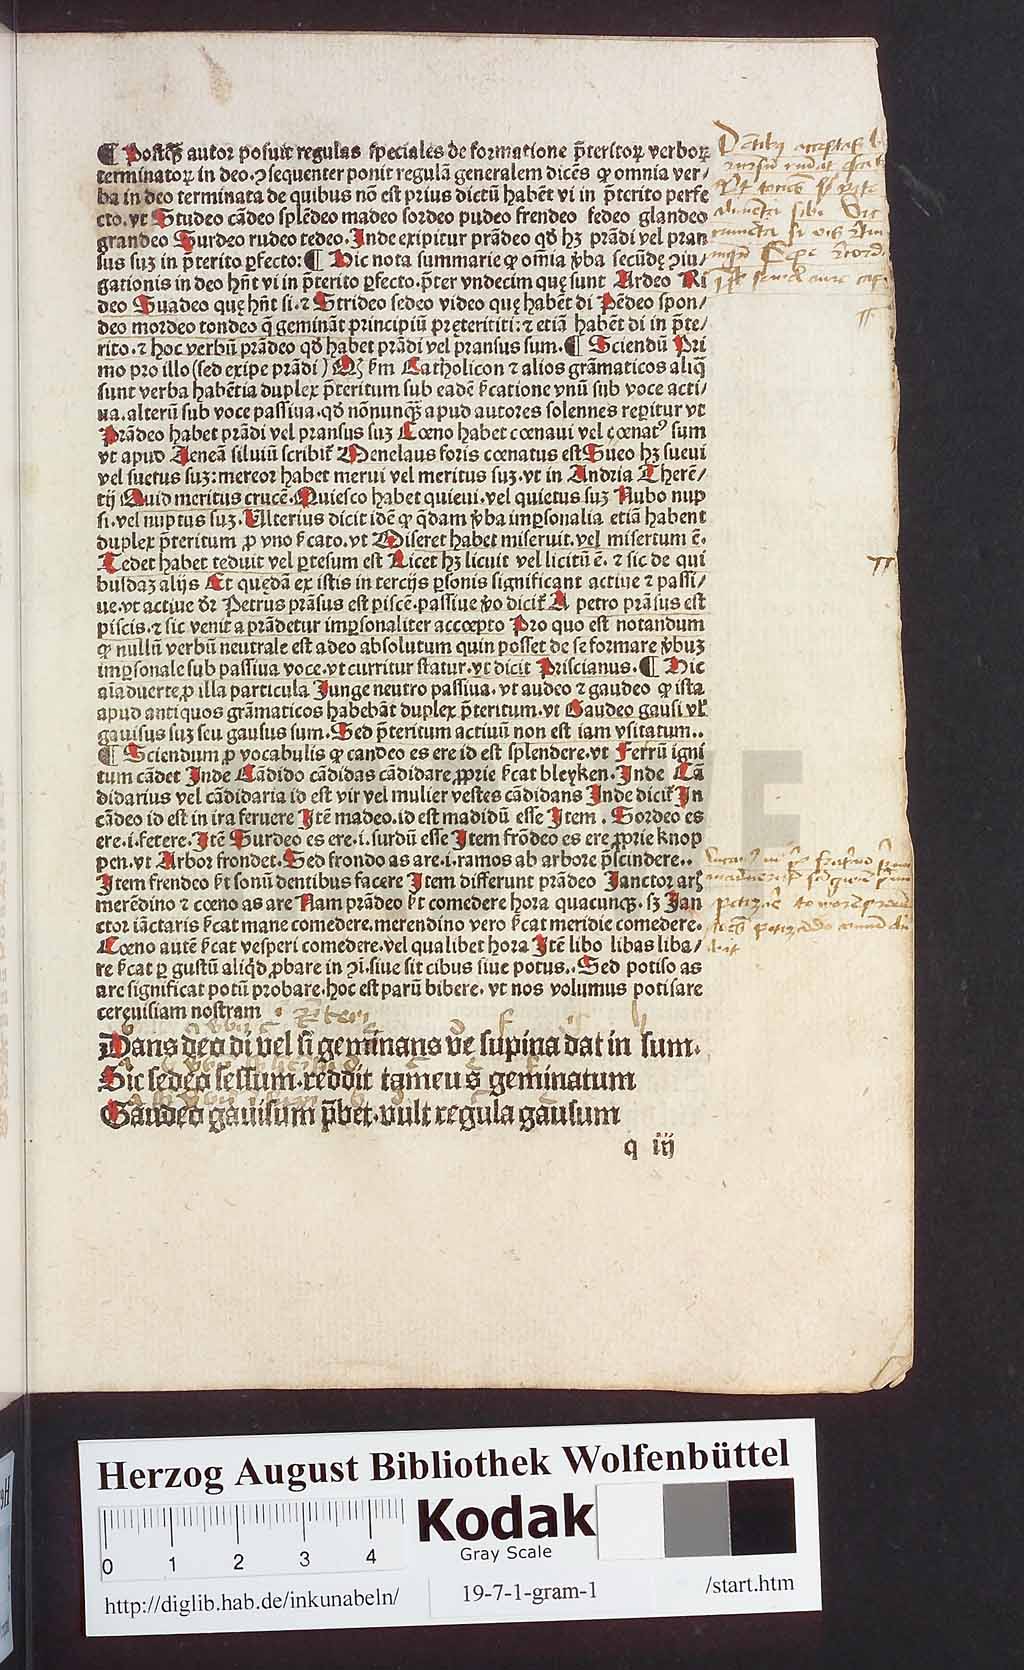 ¶ Postq̄ꝫ autor posuit regulas speciales de formatione p̄teritoꝝ verboꝝ
terminatoꝝ in deo. ꝯsequenter ponit regulā generalem dicēs ꝙ omnia ver/
ba in deo terminata de quibus nō est prius dictū habēt vi in p̄terito perfe
cto. vt Studeo cādeo splēdeo madeo sordeo pudeo frendeo sedeo glandeo
grandeo Surdeo rudeo tedeo. Inde exipitur prādeo qđ hꝫ prādi vel pran
sus suꝫ in p̄terito ꝑfecto: ¶ Hic nota summarie ꝙ omīa v̓ba secūdę ꝯiu/
gationis in deo hn̄t vi in p̄terito ꝑfecto. p̄ter vndecim quę sunt Ardeo Ri
deo Suadeo quę hn̄t si. ⁊ Strideo sedeo video quę habēt di Pēdeo spon/
deo mordeo tondeo q̄ gemināt principiū preterititi: ⁊ etiā habēt di in p̄te/
rito. ⁊ hoc verbū prādeo qđ habet prādi vel pransus sum. ¶ Sciendū Pri
mo pro illo (sed exipe prādi) Qꝫ ẜm Catholicon ⁊ alios grāmaticos aliq̄
sunt verba habētia duplex p̄teritum sub eadē ẜcatione vnū sub voce acti/
ua. alterū sub voce passiua. qđ nōnunqꝫ apud autores solennes reꝑitur vt
Prādeo habet prādi vel pransus suꝫ Cœno habet cœnaui vel cœnatꝰ sum
vt apud Aeneā siluiū scribit᷑ Menelaus foris cœnatus est Sueo hꝫ sueui
vel suetus suꝫ: mereor habet merui vel meritus suꝫ. vt in Andria Therē/
tij Quid meritus crucē. Quiesco habet quieui. vel quietus suꝫ Nubo nup
si. vel nuptus suꝫ. Ulterius dicit idē ꝙ q̄dam v̓ba imꝑsonalia etiā habent
duplex p̄teritum ꝓ vno ẜcato. vt Miseret habet miseruit. vel misertum ē.
Tedet habet teduit vel ꝑtesum est Licet hꝫ licuit vel licitū ē. ⁊ sic de qui
busdaꝫ alijs Et quędā ex istis in tercijs ꝑsonis significant actiue ⁊ passi/
ue. vt actiue dr̄ Petrus prāsus est piscē. passiue v̓o dicit᷑ A petro prāsus est
piscis. ⁊ sic venit a prādetur imꝑsonaliter accœpto Pro quo est notandum
ꝙ nullū verbū neutrale est adeo absolutum quin posset de se formare v̓buꝫ
imꝑsonale sub passiua voce. vt curritur statur. vt dicit Priscianus. ¶ Hic
aīaduerte, ꝓ illa particula Junge neutro passiua. vt audeo ⁊ gaudeo ꝙ ista
apud antiquos grāmaticos habebāt duplex p̄teritum. vt Gaudeo gausi vl̓
gauisus suꝫ seu gausus sum. Sed p̄teritum actiuū non est iam vsitatum..
¶ Sciendum ꝓ vocabulis ꝙ candeo es ere id est splendere. vt Ferrū igni
tum cādet Inde Cādido cādidas cādidare, ꝓprie ẜcat bleyken. Inde Cā
didarius vel cādidaria id est vir vel mulier vestes cādidans Inde dicit᷑ In
cādeo id est in ira feruere Itē madeo. id est madidū esse Item. Sordeo es
ere. i. fetere. Itē Surdeo es ere. i. surdū esse Item frōdeo es ere ꝓprie knop
pen. vt Arbor frondet. Sed frondo as are. i. ramos ab arbore p̄scindere..
Item frendeo ẜt sonū dentibus facere Item differunt prādeo Janctor arꝫ
merēdino ⁊ cœno as are Nam prādeo ẜt comedere hora quacunqꝫ. sꝫ Jan
ctor iāctaris ẜcat mane comedere. merendino vero ẜcat meridie comedere.
Cœno autē ẜcat vesperi comedere. vel qualibet hora Itē libo libas liba/
re ẜcat ꝑ gustū aliq̄d ꝓbare in ꝯi. siue sit cibus siue potus.. Sed potiso as
are significat potū probare. hoc est parū bibere. vt nos volumus potisare
ceruisiam nostram
Dans deo di vel si geminans ve supina dat in sum.
Sic sedeo sessum. reddit tameu s geminatum
Gaudeo gauisum p̄bet. vult regula gausum
q iij
Herzog August Bibliothek Wolfenbüttel
Kodak
Gray Scale
0 1 2 3 4
http://diglib.hab.de/inkunabeln/
19-7-1-gram-1
/start.htm